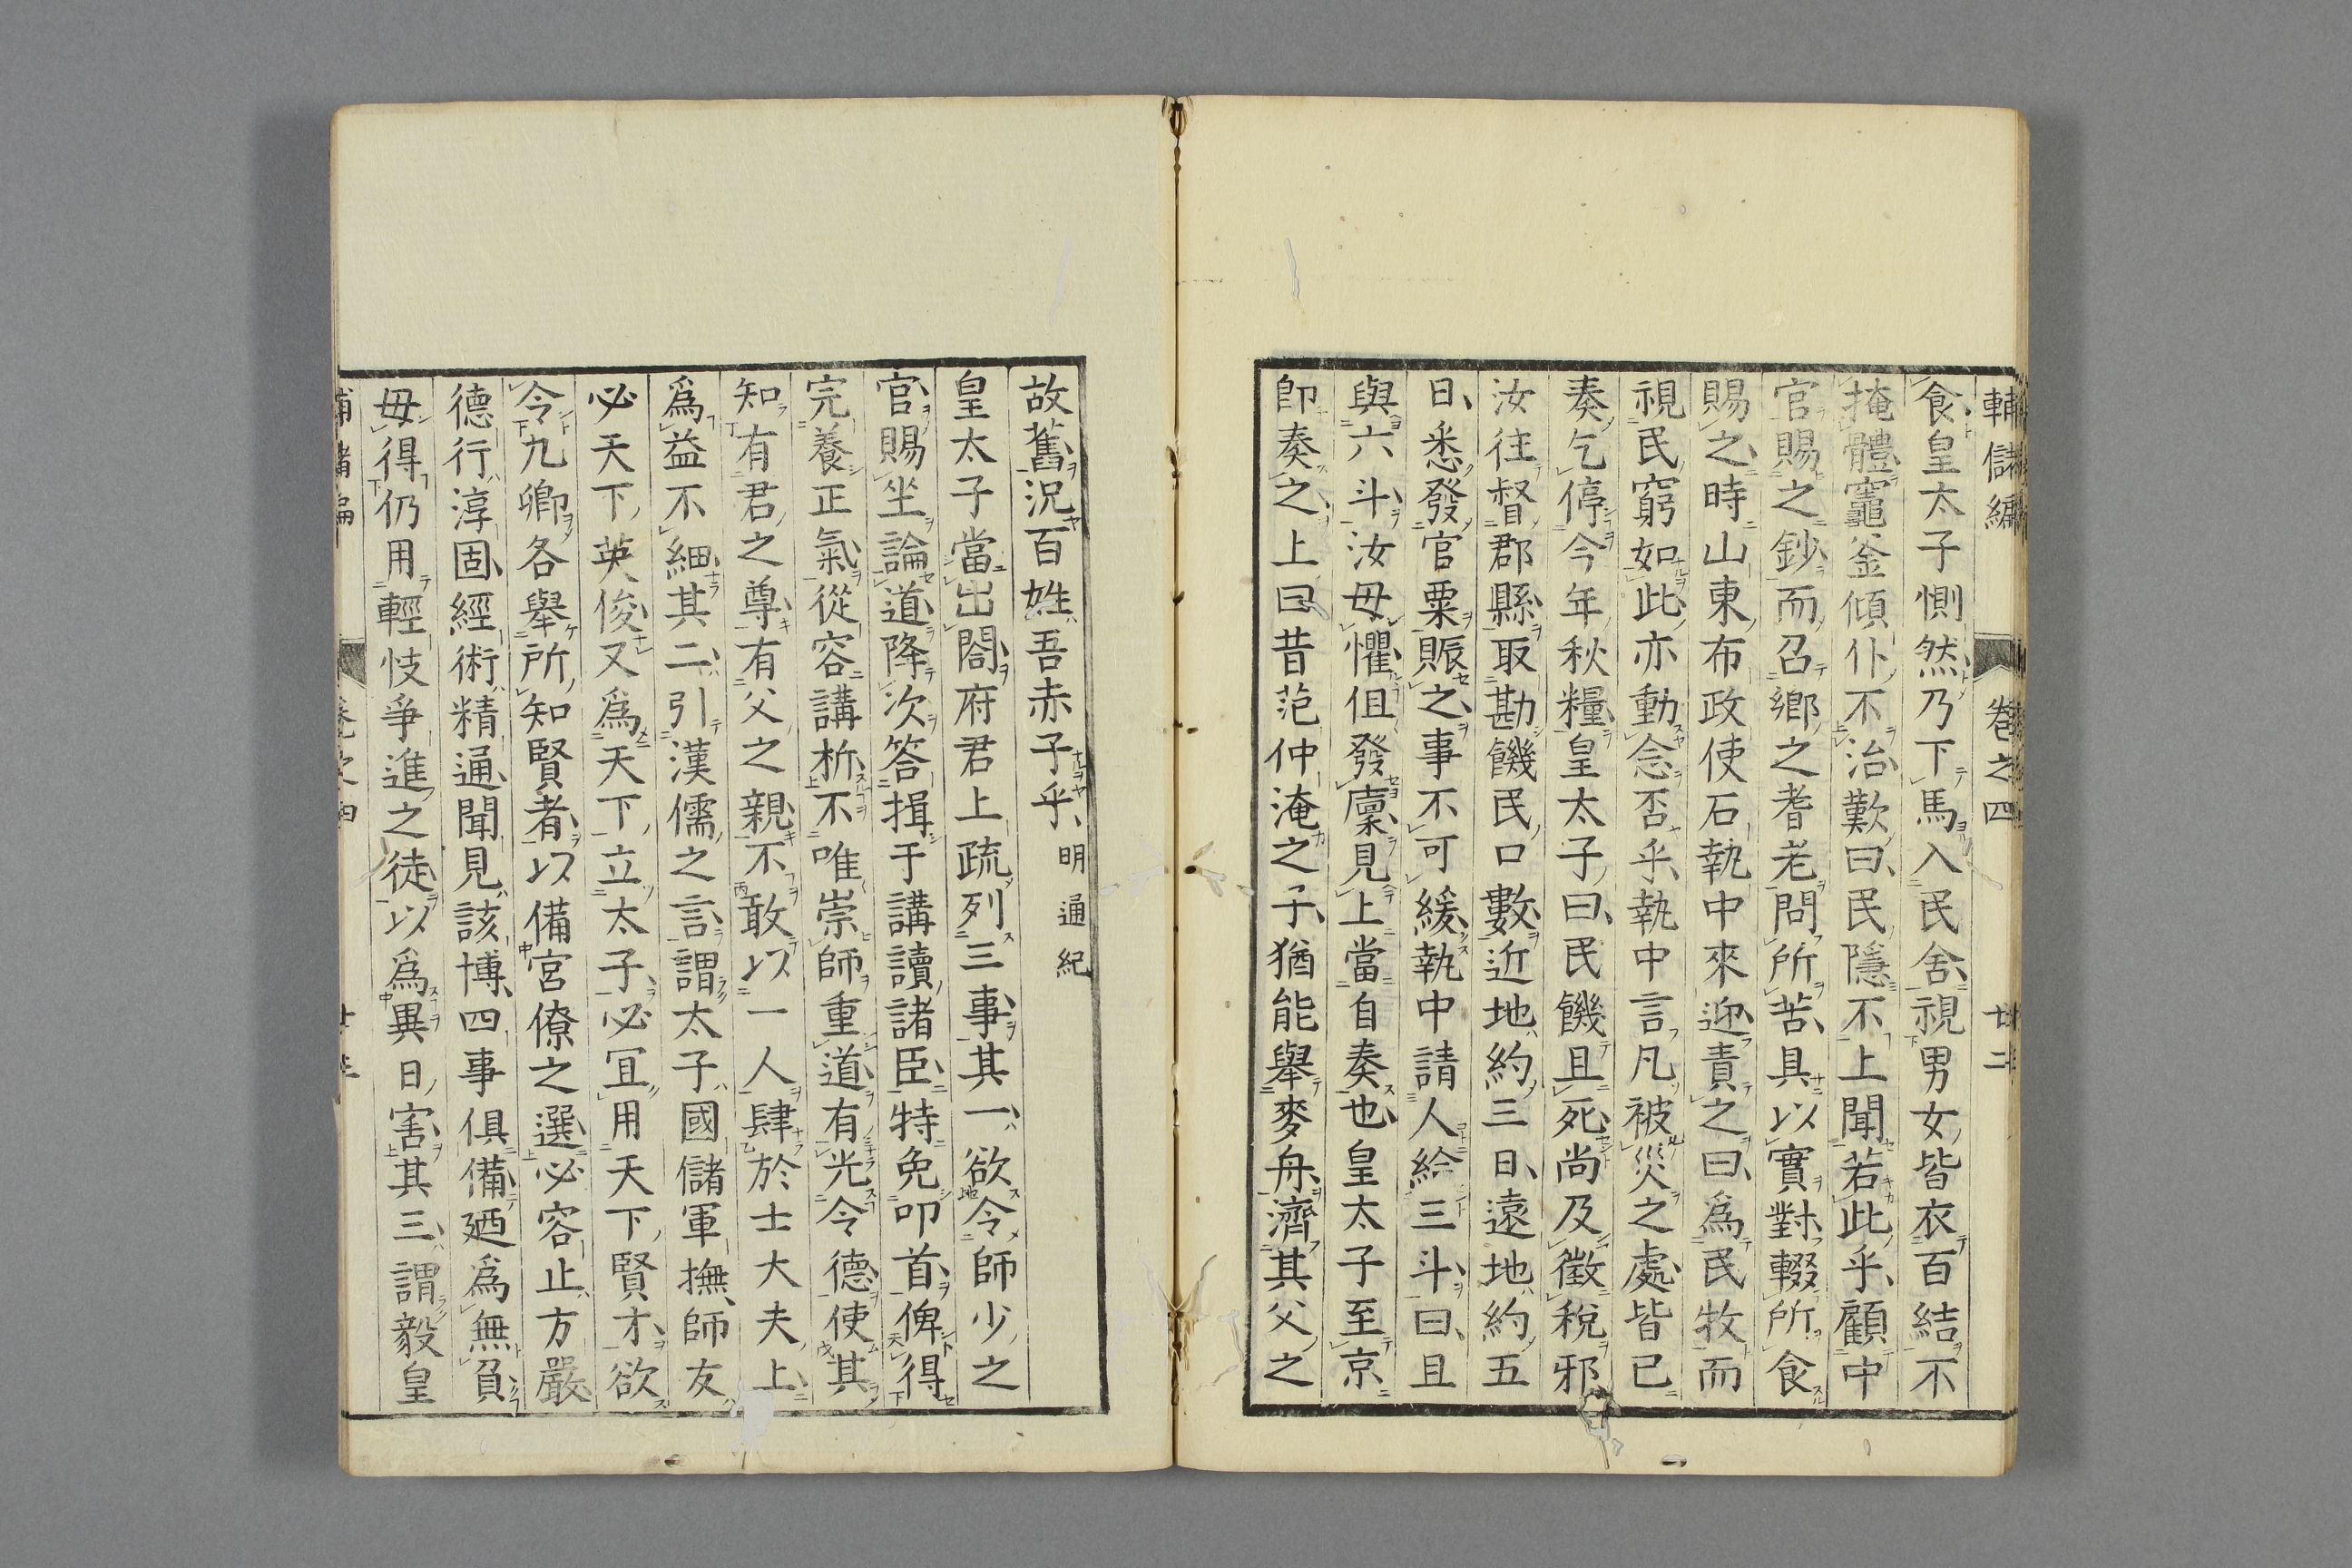 輔儲編 卷之四 廿二
食皇太子惻然乃下馬入民舍視男女皆衣百結不
掩體竈釜傾仆不治歎曰民隱不上聞若此乎顧中
官賜之鈔而召鄉之耆老問所苦具以實對輟所食
賜之時山東布政使石執中來迎責之曰爲民牧而
視民窮如此亦動念否乎執中言凡被災之處皆已
奏乞停今年秋糧皇太子曰民饑且死尚及徵稅邪
汝往督郡縣取勘饑民口數近地約三日遠地約五
日悉發官粟賑之事不可緩執中請人給三斗曰且
與六斗汝毋懼但發廩見上當自奏也皇太子至京
卽奏之上曰昔范仲淹之子猶能舉麥舟濟其父之
故舊況百姓吾赤子乎明通紀
皇太子當出閤府君上疏列三事其一欲令師少之
官賜坐論道降次答揖于講讀諸臣特免叩首俾得
完養正氣從容講析不唯崇師重道有光令德使其
知有君之尊有父之親不敢以一人肆於士大夫上
爲益不細其二引漢儒之言謂太子國儲軍撫師友
必天下英俊又爲天下立太子必宜用天下賢才欲
令九卿各舉所知賢者以備宮僚之選必容止方嚴
德行淳固經術精通聞見該博四事俱備廼爲無負
毋得仍用輕忮爭進之徒以爲異日害其三謂毅皇